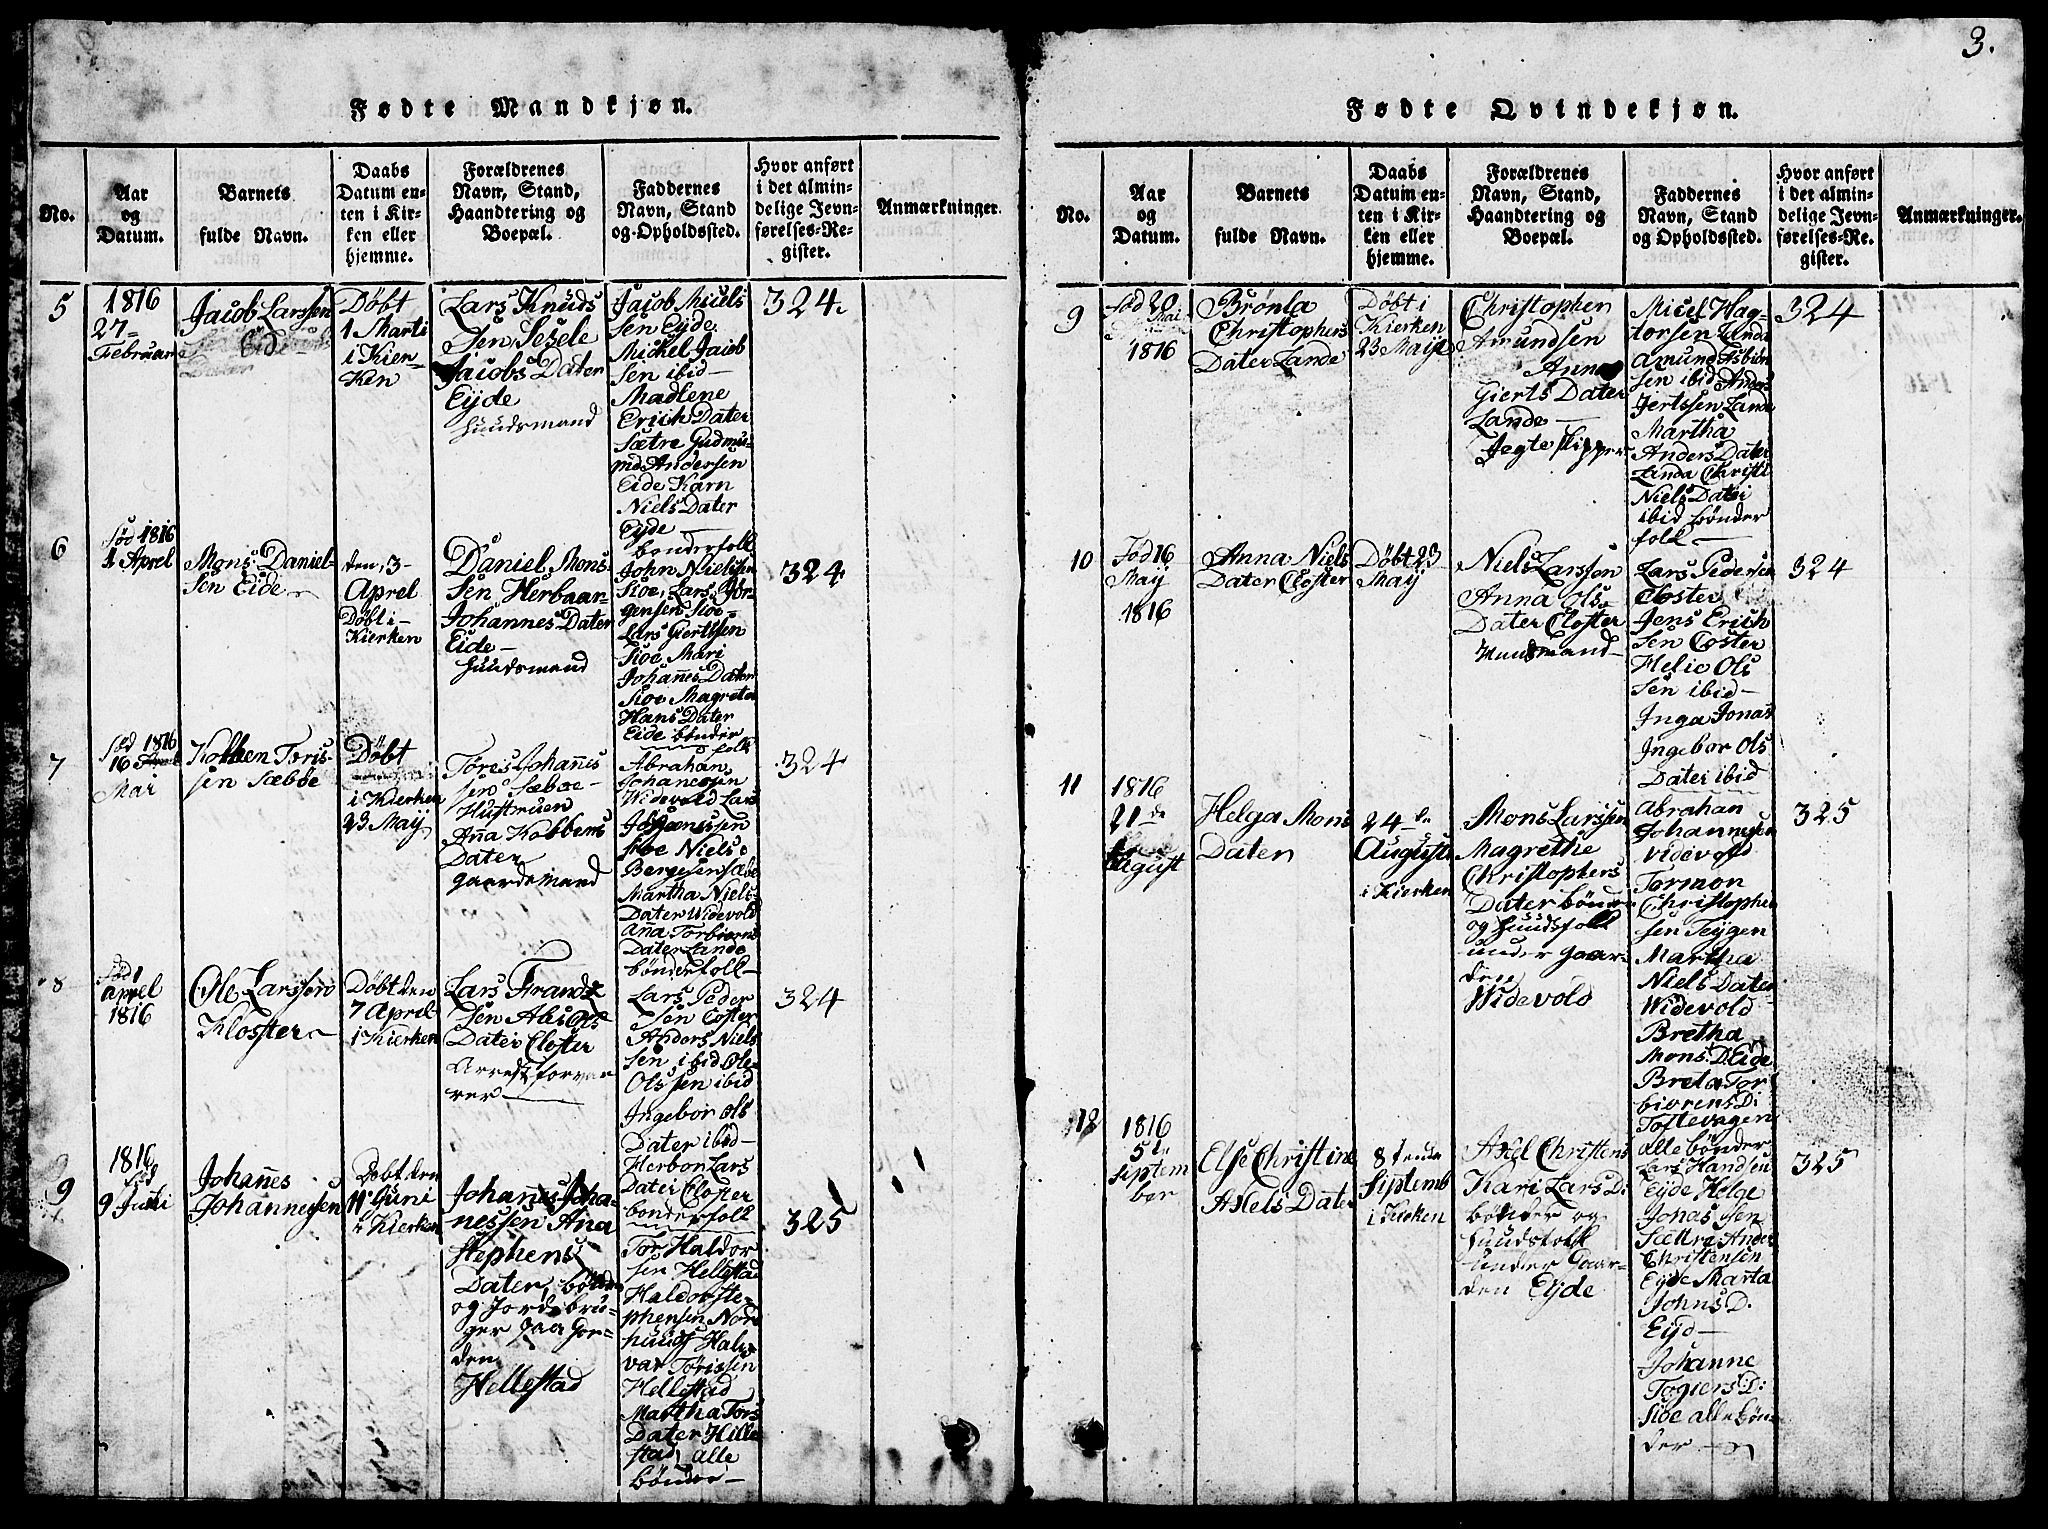 3.
Fødte Mandkjøn.
No.
Aar
og
Datum.
Barnets
fulde Navn.
Daabs
Datum en-
ten i Kir-
ken eller
hjemme.
Forældrenes
Navn, Stand,
Haandtering og
Boepæl.
Faddernes
Navn, Stand
og Opholdssted.
Hvor anført
i det almin-
delige Jevn-
førelses-Re-
gister.
Anmærkninger.
5
1816
27
Februari
Jacob Larssen
Eide
Døbt
1 Marti
i Kier-
ken
Lars Knuds
Sen Sesele
Jacobs Dater
Eyde
Huudsmand
Jacob Micels
sen Eyde
Mickel Jacob
sen ibid
Madlene
Erich Dater
Sætre Gudmu-
nd Andersen
Eide Karn
Niels Dater
Eyde
bonderfolk
324.
6
Fød 1816
1 Aprel
Mons Daniel-
sen Eide
den 3
Aprel
Døbt i
Kierken
Daniel Mons
Sen Herbaar
Johannes Dater
Eide
Huudsmand
John Nielsen
Sioe, Lars Jør-
gensen Sioe
Lars Giertsen
Sioe Mari
Johannes Dater
Sioe Magreta
Hans Dater
Eide bønder
folk
324
7
Fød 1816
16
Mai
Kolben Tøris-
sen Sæbøe
Døbt
i Kierken
23 Maij
Tøres Johannes
sen Sæbøe
Hustruen
Anna Kolbens
Dater
Gaardemand
Abrahan
Johannesen
Widevold Lars
Jørgenssen
Sioe Niels
Bergesen Sæbø
Martha Niels
Dater Widevold
Ana Torbiørns
Dater Lande
bønderfolk
324
8
Fød 1
aprel
1816
Ole Larssen
Kloster
Døbt den
7 April
i Kierken
Lars Frands
Sen Abs Ols
Dater Closter
Arrestforvar
rer
Lars Peder
sen Coster
Anders Niels
sen ibid Ole
Olssen ibid
Ingebor Ols
Dater ibid
Herbor Lars
Dater Closter
bonderfolk
324
9
1816
Fød
9 Juni
Johannes
Johannesen
Dobt den
11 Juni
i Kierken
Johanes Joha-
nessen Ana
Stephens
Dater, bønder
og Jordsbru-
ger paa Gor-
den
Hellestad
Tor Haldor
sen Hellestad
Haldor Ste-
phensen Nord
huus Hal-
var Tørissen
Hellestad
Martha Tors
Dater Hille
stad, alle
bønder
325
Fødte Qvindekjøn.
No.
Aar
og
Datum.
Barnets
fulde Navn.
Daabs
Datum en-
ten i Kir-
ken eller
hjemme.
Forældrenes
Navn, Stand,
Haandtering og
Boepæl.
Faddernes
Navn, Stand
og Opholdssted.
Hvor anført
i det almin-
delige Jevn-
førelses-Re-
gister.
Anmærkninger.
9
Fød 20
Mai
1816
Brønla
Christophers
Dater Lande
Døbt i
Kierken
23 Maije
Christopher
Amundsen
Anna
Gierts Dater
Lande
Jegteskipper
Micel Hag-
torsen Landa
Amund Asbiørn
sen ibid Anders
Jertssen Lande
Martha
Anders Dater
Landa Christi
Niels Dater
ibid bønder
folk
324
10
Fød 16
Maij
1816
Anna Niels
Dater Closter
Døbt 23
Maij
Niels Larsson
Anna Ols
Dater Closter
Huusmand
Lars Pedersen
Closter
Jens Erich
sen Coster
Helie Ols
sen ibid
Inga Jonas
Ingebor Ols
Dater ibid
324
11
1816
21de
August
Helga Mons
Dater
24de
Augusti
i Kierken
Mons Larssen
Magrethe
Christophers
Dater bønder
og Huudsfolk
under Gaar-
den
Widevold
Abrahan
Johannesen
Videvold
Tormon
Christophen
sen Teigen
Martha
Niels Dater
Widevold
Bretha
Mons D. Eide
Breta Tor
biørens D:
Toftevagen
alle bønder
325
12
1816
5te
Septem
ber
Else Christine
Axels Dater
8tende
Septemb
i Kierken
Axel Christens
Kari Lars D:
bønder og
Huudsfolk
under Gaar-
den Eyde
Lars Handsen
Eyde Helge
Jonas sen
Sættre Ander
Christensen
Eyde Marta
Johns D.
Eyd
Johanne
Togiers D:
Sioe alle bøn-
der
325